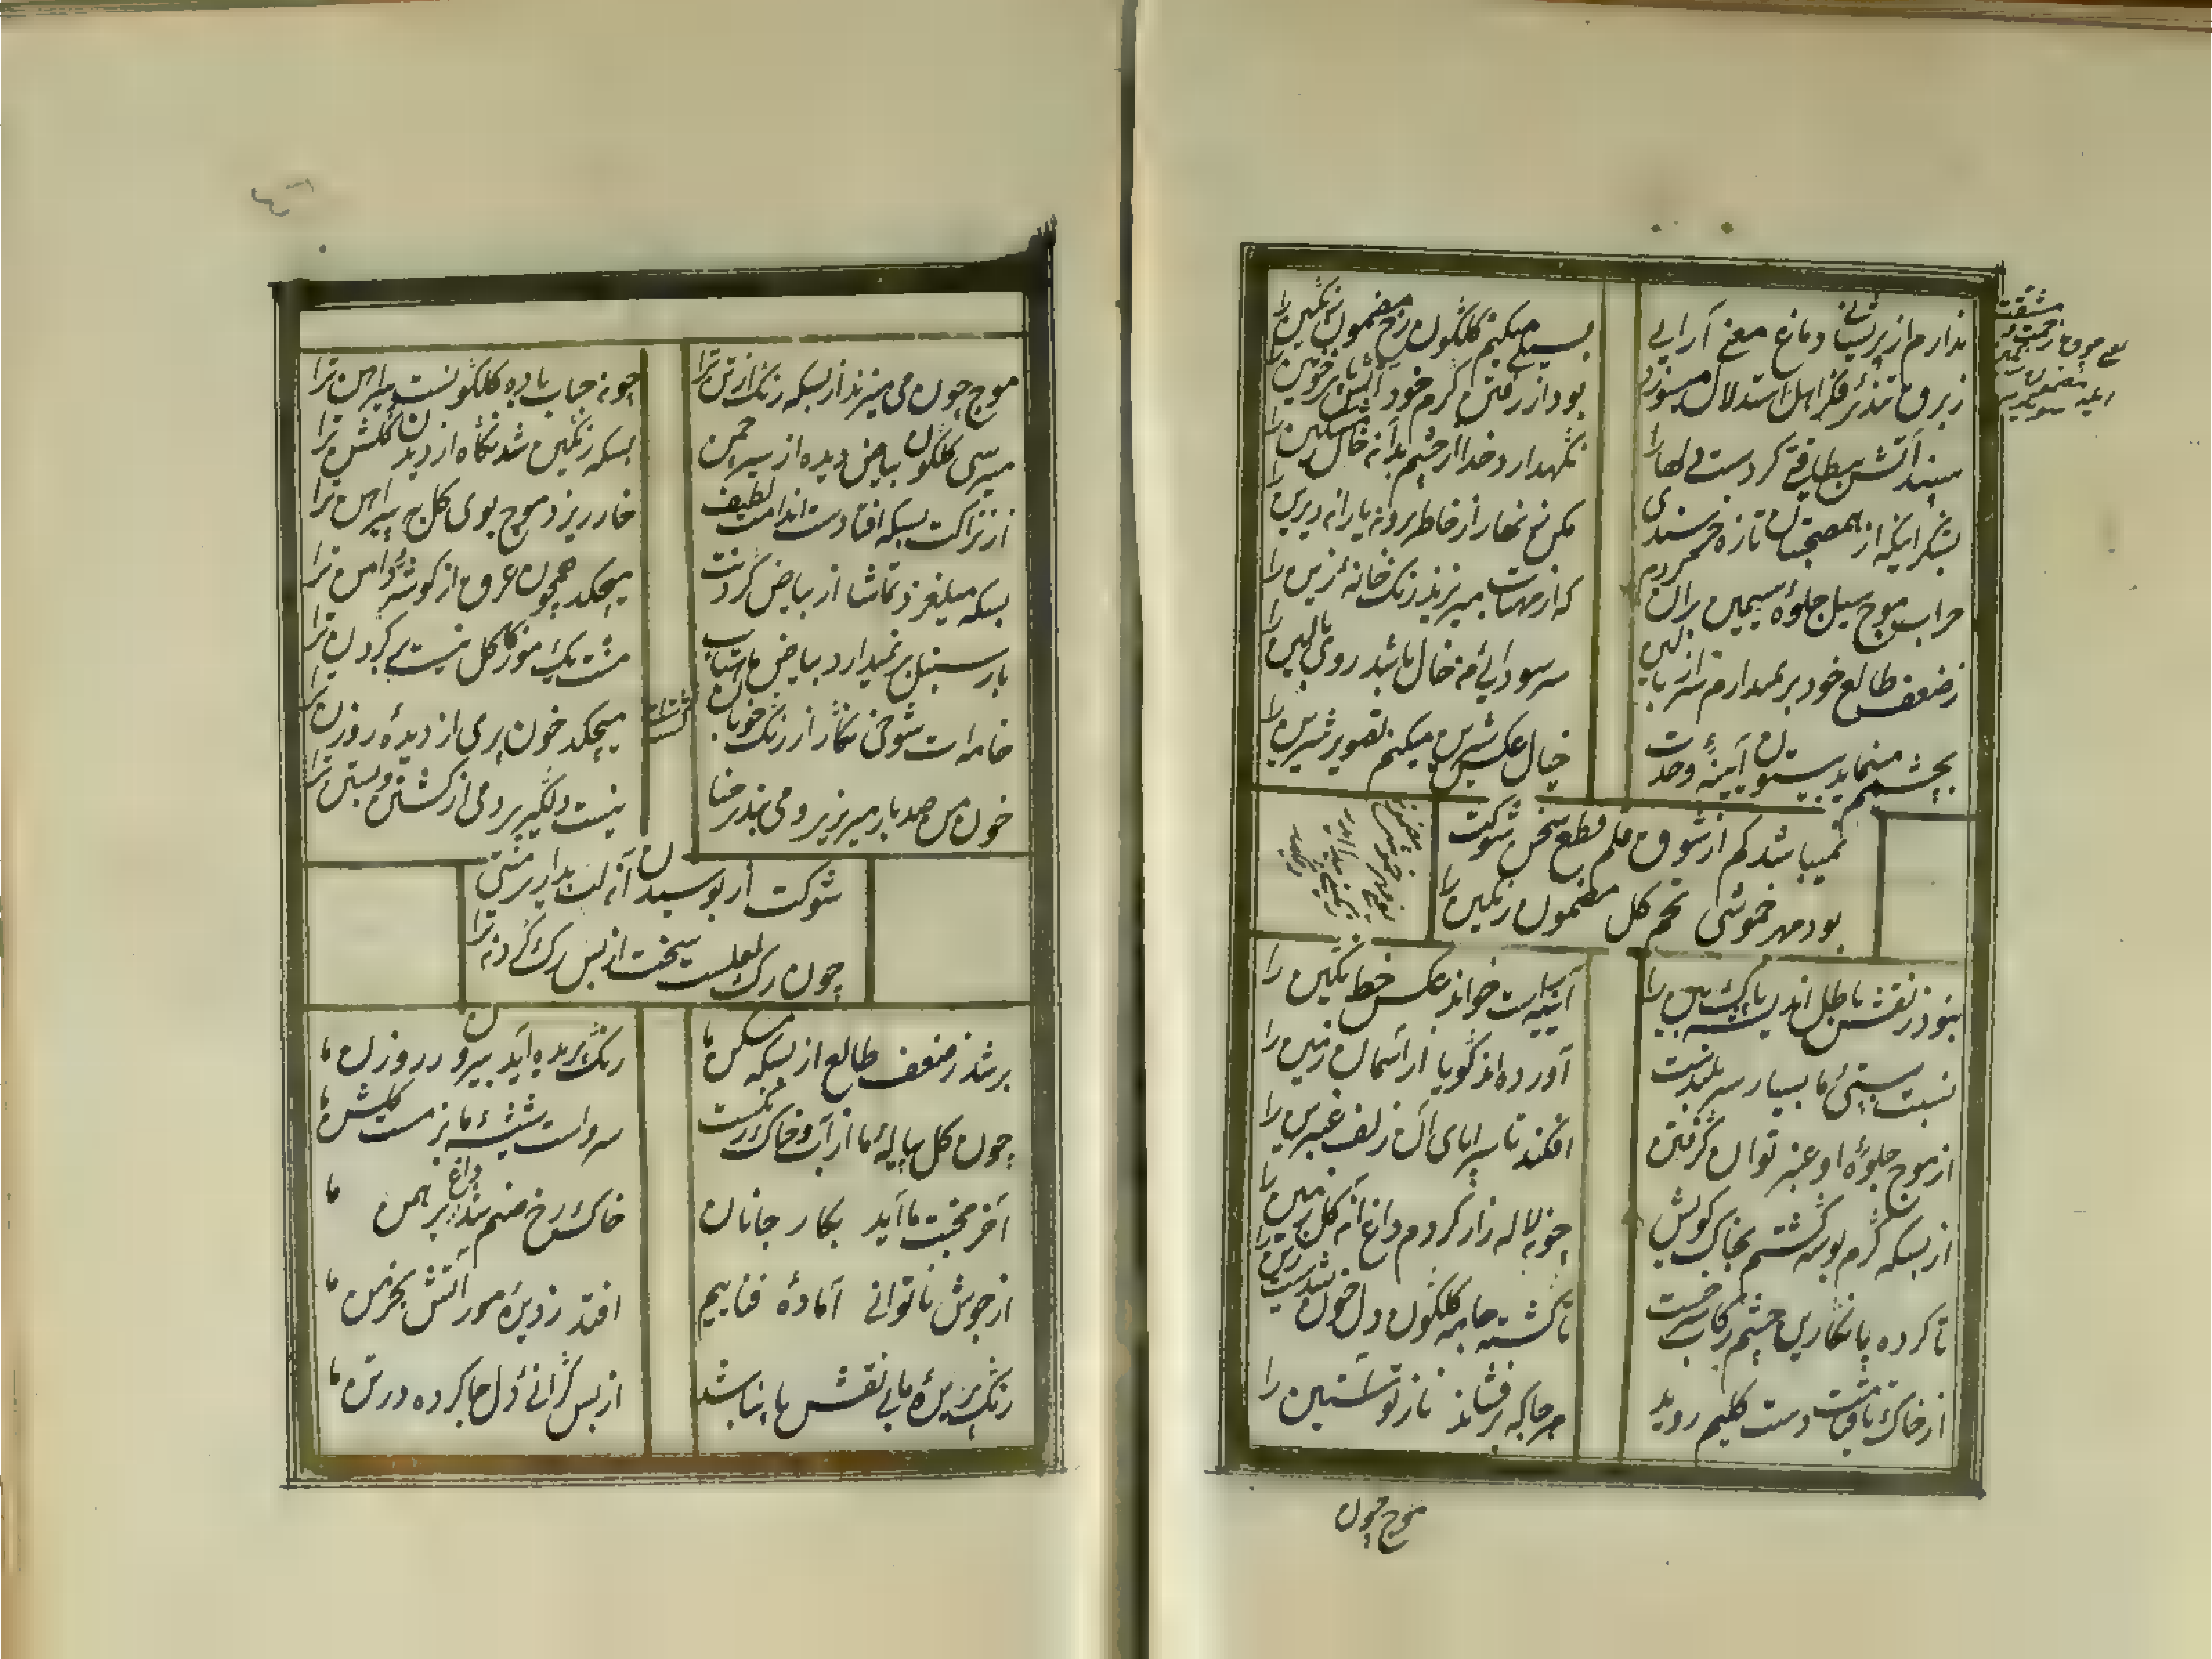 ندارم از پریشانی دماغ معنی آرایی
بسیلی میکنم گلگون رخ مضمون رنگین را
ز برق تندی فکر اهل استدلال میسوزد
بود از رفتن گرم خود آتش
سپند آتش بیطاقتی کردست دلها را
نگهدارد خدا از چشم بد آن خال مشکین را
بشکر اینکه از همصحبتان تازه خرسندی
مکن منع نهار از خاطر یاران دیرین را
خراب موج سیل جلوهٔ سیمین بران کردم
که از مهتاب میریزند رنگ خانهٔ زین را
ز ضعف طالع خود برنمیدارم سر از بالین
سر سودایی من خال باشد روی بالین را
بچشمم مینماید بیستون آیینهٔ وحدت
خیال عکس شیرین میکنم تصویر شیرین را
نمیباشد کم از شوق قلم قطع سخن شوکت
بود مهر خموشی تخم گل مضمون رنگین را
نبود ز نقش باطل اندیشه پاک بین را
آیینه راست خواند عکس خط نگین را
نسبت بپستی ما بسیار سر بلندست
آورده‌اند گویا از آسمان زمین را
از موج جلوهٔ او عنبر توان گرفتن
افکند تا بپای آن زلف عنبرین را
از بسکه گرم بوسه گشتم بخاک کویش
چون لاله زار کردم داغ آن گل زمین را
تا کرده پا نگارین چشم رکاب سرخست
تا گشته جامه گلگون دل خون شدست زین را
از خاک تا قیامت دست کلیم روید
هر جا که برفشاند ناز تو آستین را
موج چون
موج چون می میزند از بسکه رنگ از تن ترا
چون حباب باده گلگونست پیراهن ترا
میرسی گلگون بیاض دیده از سیر چمن
بسکه رنگین شد نگاه از دیدن گلشن ترا
از نزاکت بسکه افتادست اندامت لطیف
خار ریزد موج بوی گل به پیراهن ترا
بسکه میلغزد تماشا از بیاض گردنت
میچکد همچون عرق از گوشهٔ دامن ترا
بار سنبل برنمیدارد بیاض ماهتاب
مشت یک مو ز کاکل نیست بر گردن ترا
خامه‌ات شوخی نگار از رنگ خوبان
میچکد خون پری از دیدهٔ روزن ترا
خون من صد بار میریزی و می بندی حنا
نیست دلگیر دمی از کشتن و بستن ترا
شوکت از بوسیدن آن لب ندارد منتی
چون رگ لعلست سخت از بس رگ گردن ترا
بر شد ز ضعف طالع از بسکه مسکن ما
رنگ پریده آید بیرون ز روزن ما
چون گل پیالهٔ ما از آب و خاک رنگست
سرو است شیشهٔ ما بزمست گلشن ما
آخر محبت ما آید بکار جانان
خاک رخ صنم شد داغ برهمن ما
از جوش ناتوانی آمادهٔ فناییم
افتد ز دیدهٔ مور آتش بخرمن ما
رنگ پریدهٔ ما بی نقش پا نباشد
از بس گرانی دل جا کرده در تن ما